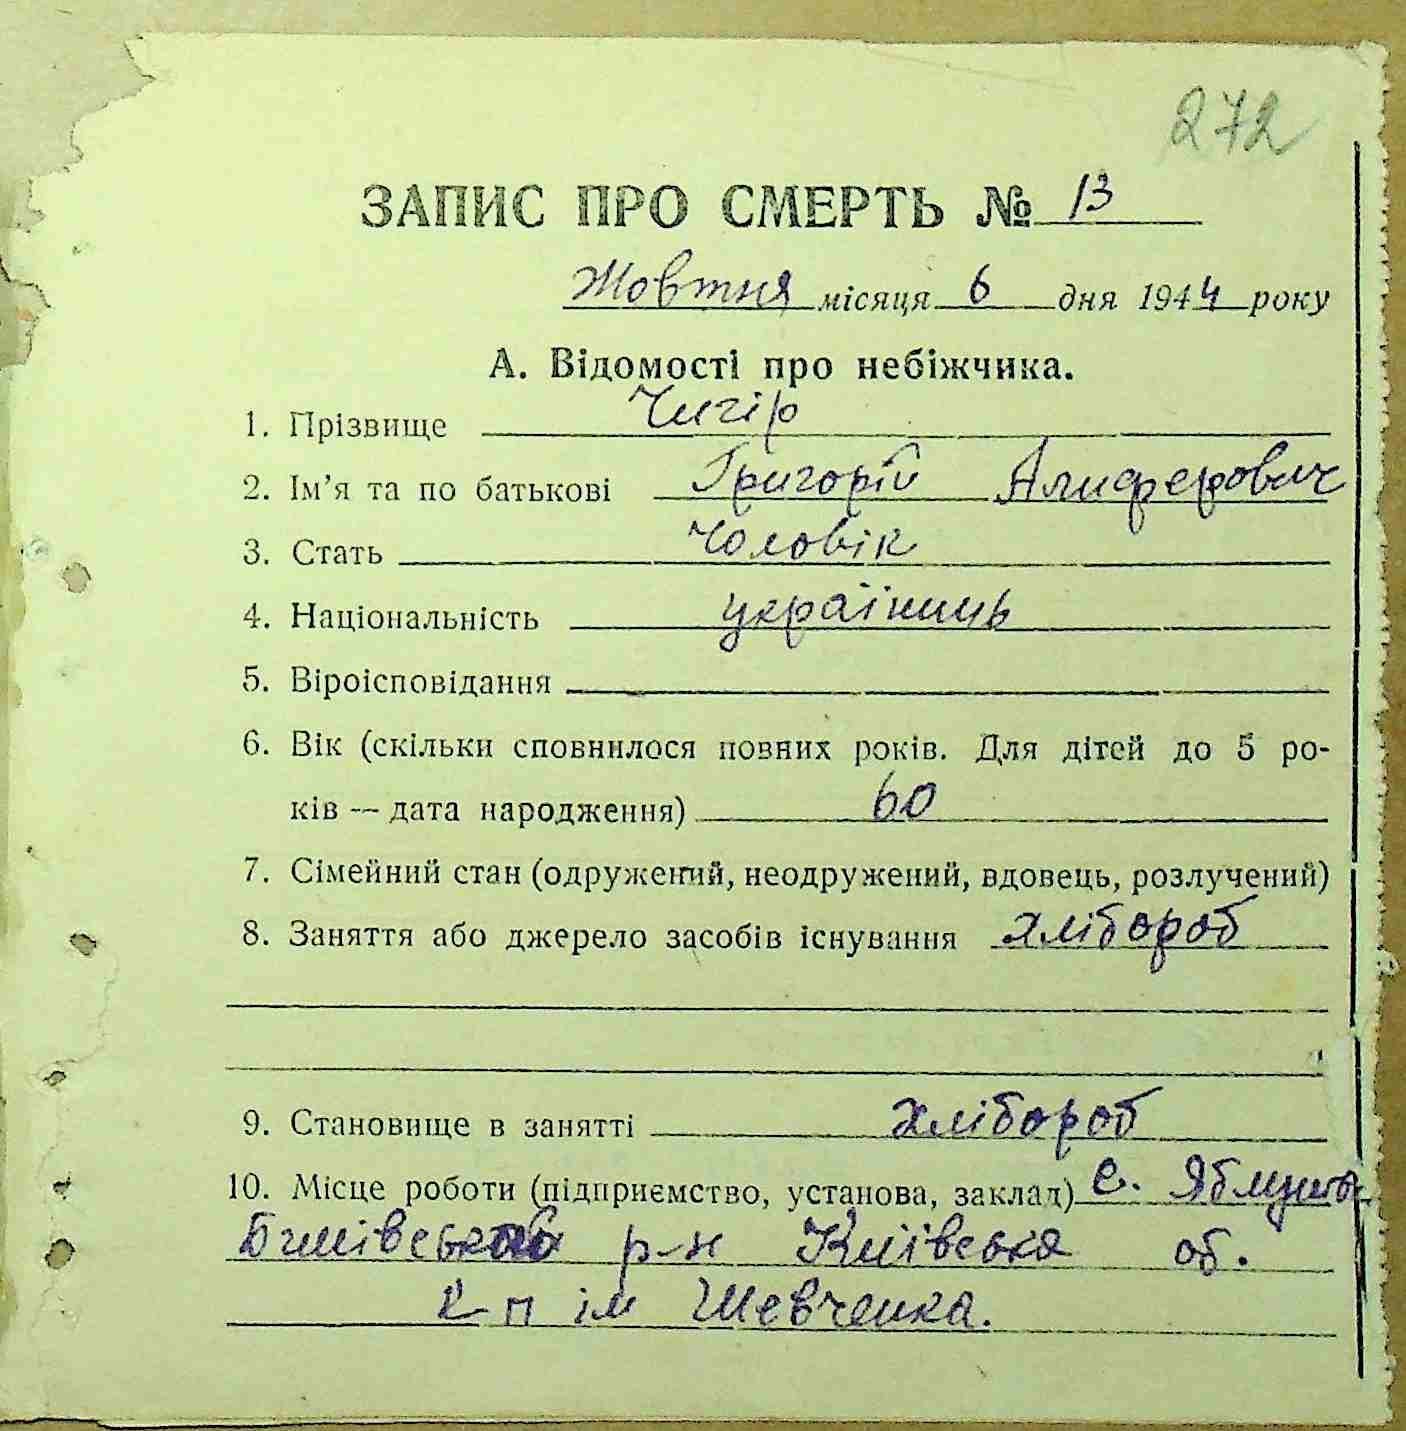 272
ЗАПИС ПРО СМЕРТЬ № 13
Жовтня місяця 6 дня 1944 року
А. Відомості про небіжчика.
1. Прізвище Чигір
2. Ім'я та по батькові Григорій Алиферович
3. Стать Чоловік
4. Національність українць
5. Віроісповідання
6. Вік (скільки сповнилося повних років. Для дітей до 5 ро-
ків — дата народження) 60
7. Сімейний стан (одружений, неодружений, вдовець, розлучений)
8. Заняття або джерело засобів існування хлібороб
9. Становище в занятті хлібороб
10. Місце роботи (підприємство, установа, заклад) с.
р-н Київська об.
к-п ім Шевченка.